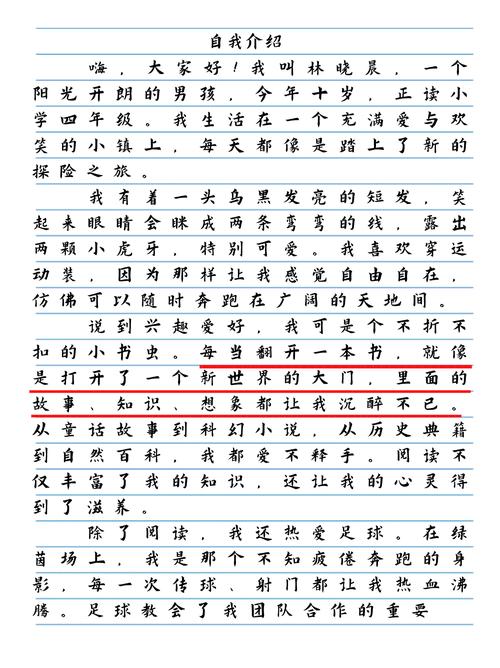 自我介绍
嗨，大家好！我叫林晓晨，一个
阳光开朗的男孩，今年十岁，正读小
学四年级。我生活在一个充满爱与欢
笑的小镇上，每天都像是踏上了新的
探险之旅。
我有着一头乌黑发亮的短发，笑
起来眼睛会眯成两条弯弯的线，露出
两颗小虎牙，特别可爱。我喜欢穿运
动装，因为那样让我感觉自由自在，
仿佛可以随时奔跑在广阔的天地间。
说到兴趣爱好，我可是个不折不
扣的小书虫。每当翻开一本书，就像
是打开了一个新世界的大门，里面的
故事、知识、想象都让我沉醉不已。
从童话故事到科幻小说，从历史典籍
到自然百科，我都爱不释手。阅读不
仅丰富了我的知识，还让我的心灵得
到了滋养。
除了阅读，我还热爱足球。在绿
茵场上，我是那个不知疲倦奔跑的身
影，每一次传球、射门都让我热血沸
腾。足球教会了我团队合作的重要